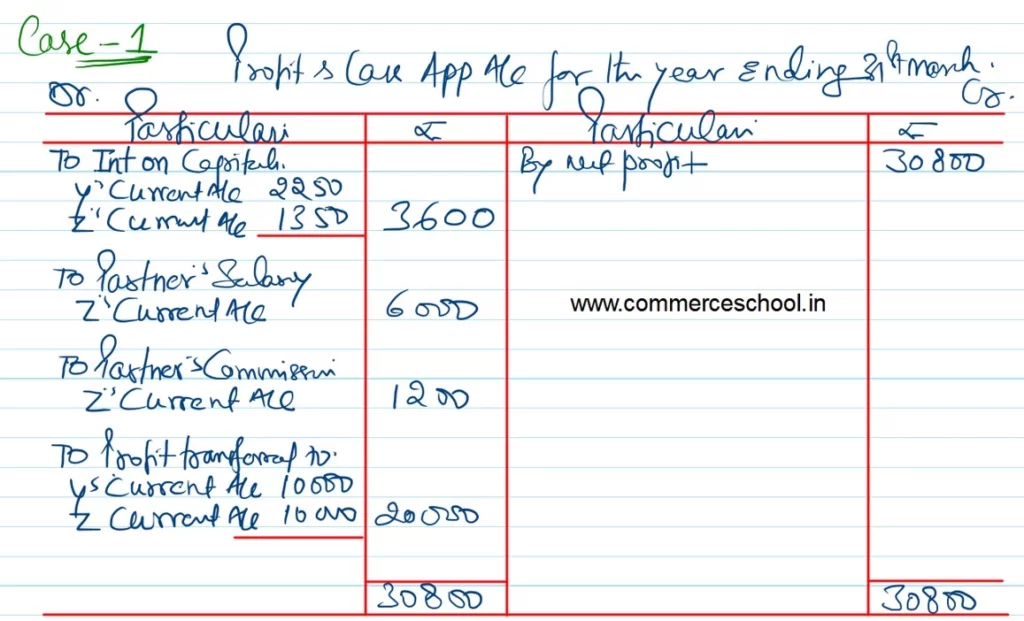 Case-1
Profit & Loss App A/c for the year ending 31st march.
Dr. Cr.
Particulars ₹ Particulars ₹
To Int on Capital. By net profit 30800
Y's Current A/c 2250
Z's Current A/c 1350 3600
To Partner's Salary
Z's Current A/c 6000
www.commerceschool.in
To Partner's Commission
Z's Current A/c 1200
To Profit transferred to.
Ys Current A/c 10000
Z Current A/c 10000 20000
30800 30800